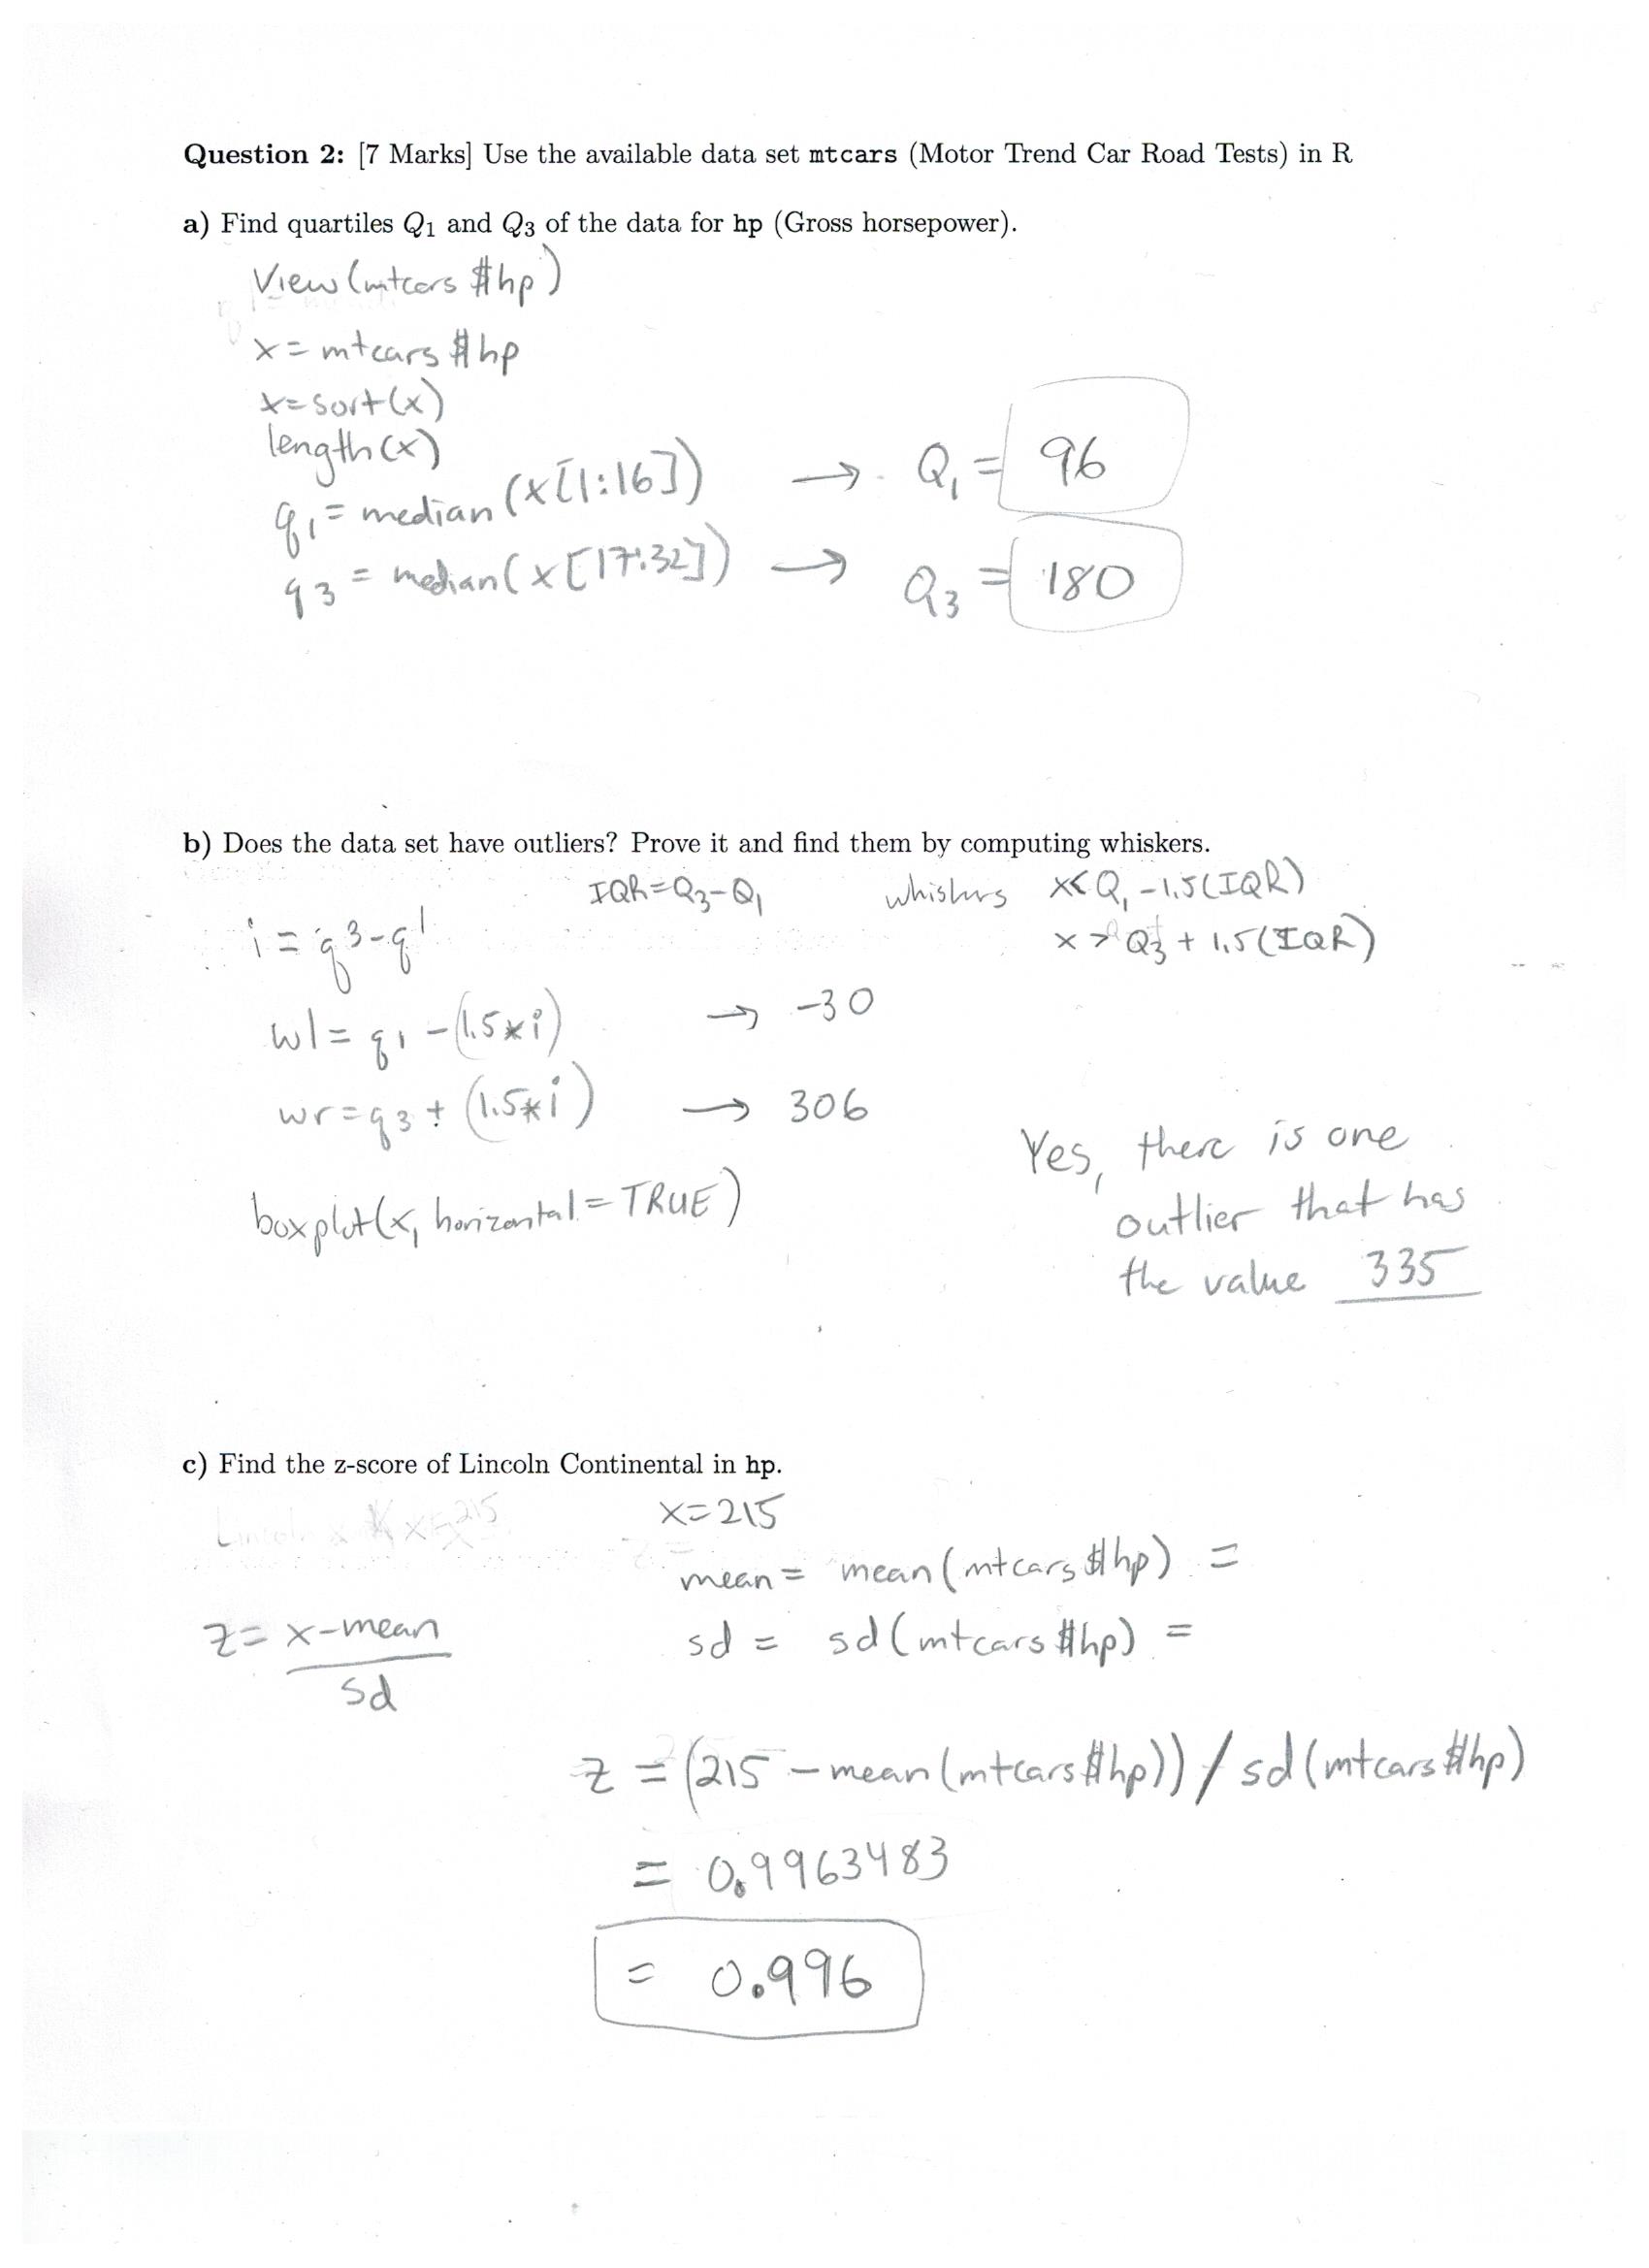 Question 2: [7 Marks] Use the available data set mtcars (Motor Trend Car Road Tests) in R
a) Find quartiles Q₁ and Q₃ of the data for hp (Gross horsepower).
View(mtcars $hp)
x = mtcars $hp
x=sort(x)
length(x)
q1 = median (x[1:16]) → Q₁ = 96
q3 = median(x[17:32]) → Q₃ = 180
b) Does the data set have outliers? Prove it and find them by computing whiskers.
IQR=Q₃-Q₁ whiskers x<Q₁-1.5(IQR)
x > Q₃ + 1.5(IQR)
i = q3-q1
wl = q1 -(1.5*i) → -30
wr=q3 + (1.5*i) → 306
boxplot(x, horizontal = TRUE)
Yes, there is one
outlier that has
the value 335
c) Find the z-score of Lincoln Continental in hp.
Lincoln x=215
x=215
mean = mean(mtcars $hp) =
sd = sd(mtcars $hp) =
z = x-mean
sd
z = (215 - mean(mtcars$hp)) / sd(mtcars $hp)
= 0.9963483
= 0.996